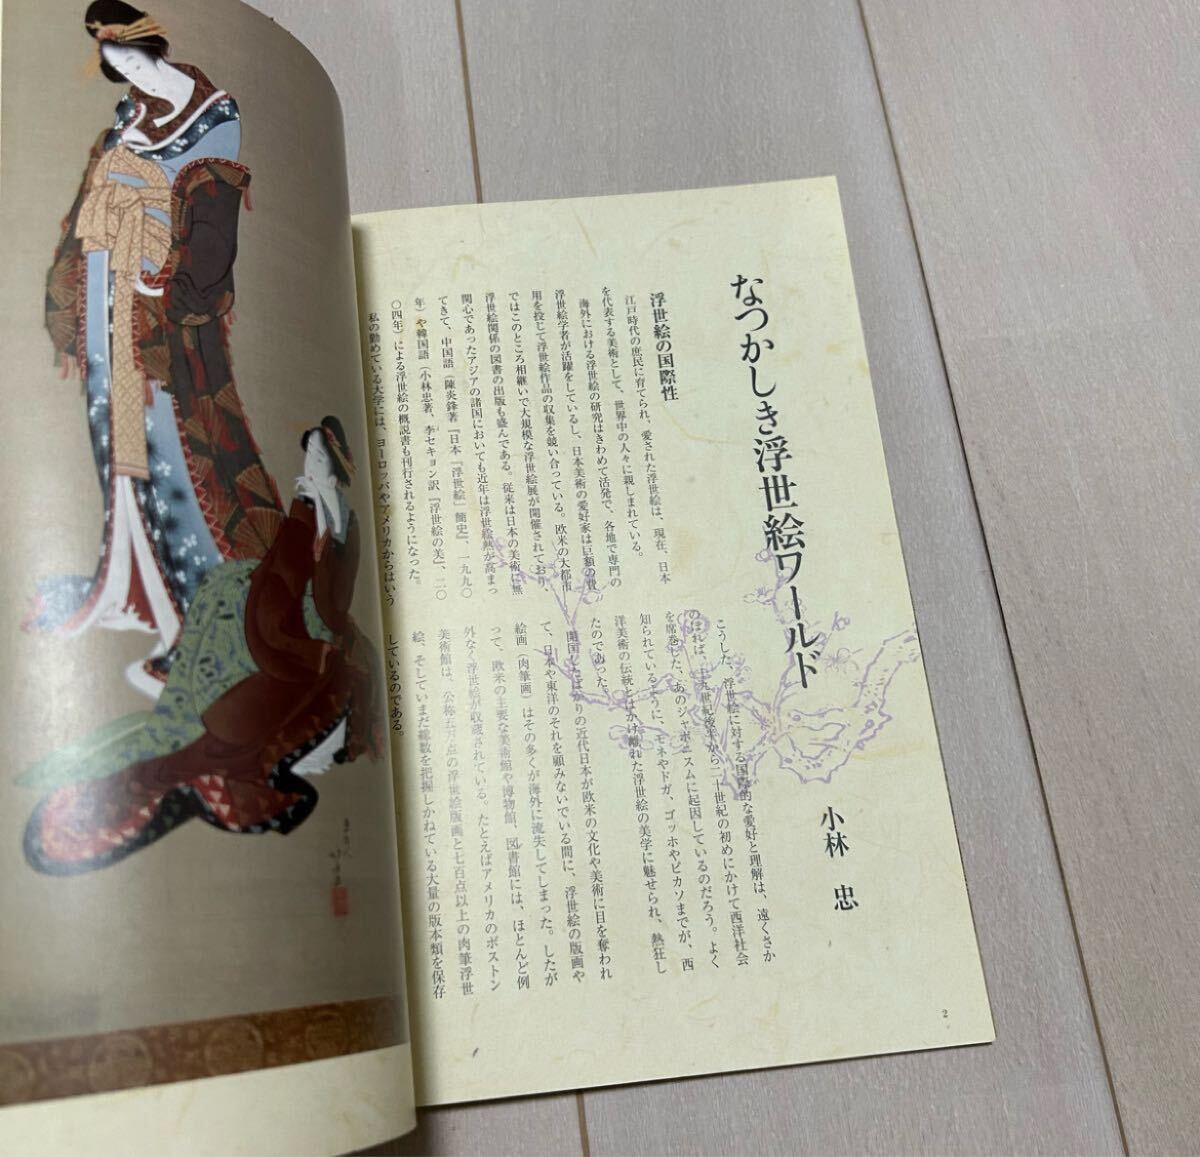 なつかしき浮世絵ワールド
小林 忠
浮世絵の国際性
江戸時代の庶民に育てられ、愛された浮世絵は、現在、日本
を代表する美術として、世界中の人々に親しまれている。
海外における浮世絵の研究はきわめて活発で、各地で専門の
浮世絵学者が活躍をしているし、日本美術の愛好家は巨額の費
用を投じて浮世絵作品の収集を競い合っている。欧米の大都市
ではこのところ相継いで大規模な浮世絵展が開催されており、
浮世絵関係の図書の出版も盛んである。従来は日本の美術に無
関心であったアジアの諸国においても近年は浮世絵熱が高まっ
てきて、中国語（陳炎鋒著『日本「浮世絵」簡史』、一九九〇
年）や韓国語（小林忠著、李セキョン訳『浮世絵の美』、二〇
〇四年）による浮世絵の概説書も刊行されるようになった。
私の勤めている大学には、ヨーロッパやアメリカからはいう
こうした、浮世絵に対する国際的な愛好と理解は、遠くさか
のぼれば、十九世紀後半から二十世紀の初めにかけて西洋社会
を席巻した、あのジャポニスムに起因しているのだろう。よく
知られているように、モネやドガ、ゴッホやピカソまでが、西
洋美術の伝統とはかけ離れた浮世絵の美学に魅せられ、熱狂し
たのであった。
開国したばかりの近代日本が欧米の文化や美術に目を奪われ
て、日本や東洋のそれを顧みないでいる間に、浮世絵の版画や
絵画（肉筆画）はその多くが海外に流失してしまった。したが
って、欧米の主要な美術館や博物館、図書館には、ほとんど例
外なく浮世絵が収蔵されている。たとえばアメリカのボストン
美術館は、公称五万点の浮世絵版画と七百点以上の肉筆浮世
絵、そしていまだ総数を把握しかねている大量の版本類を保存
しているのである。
2